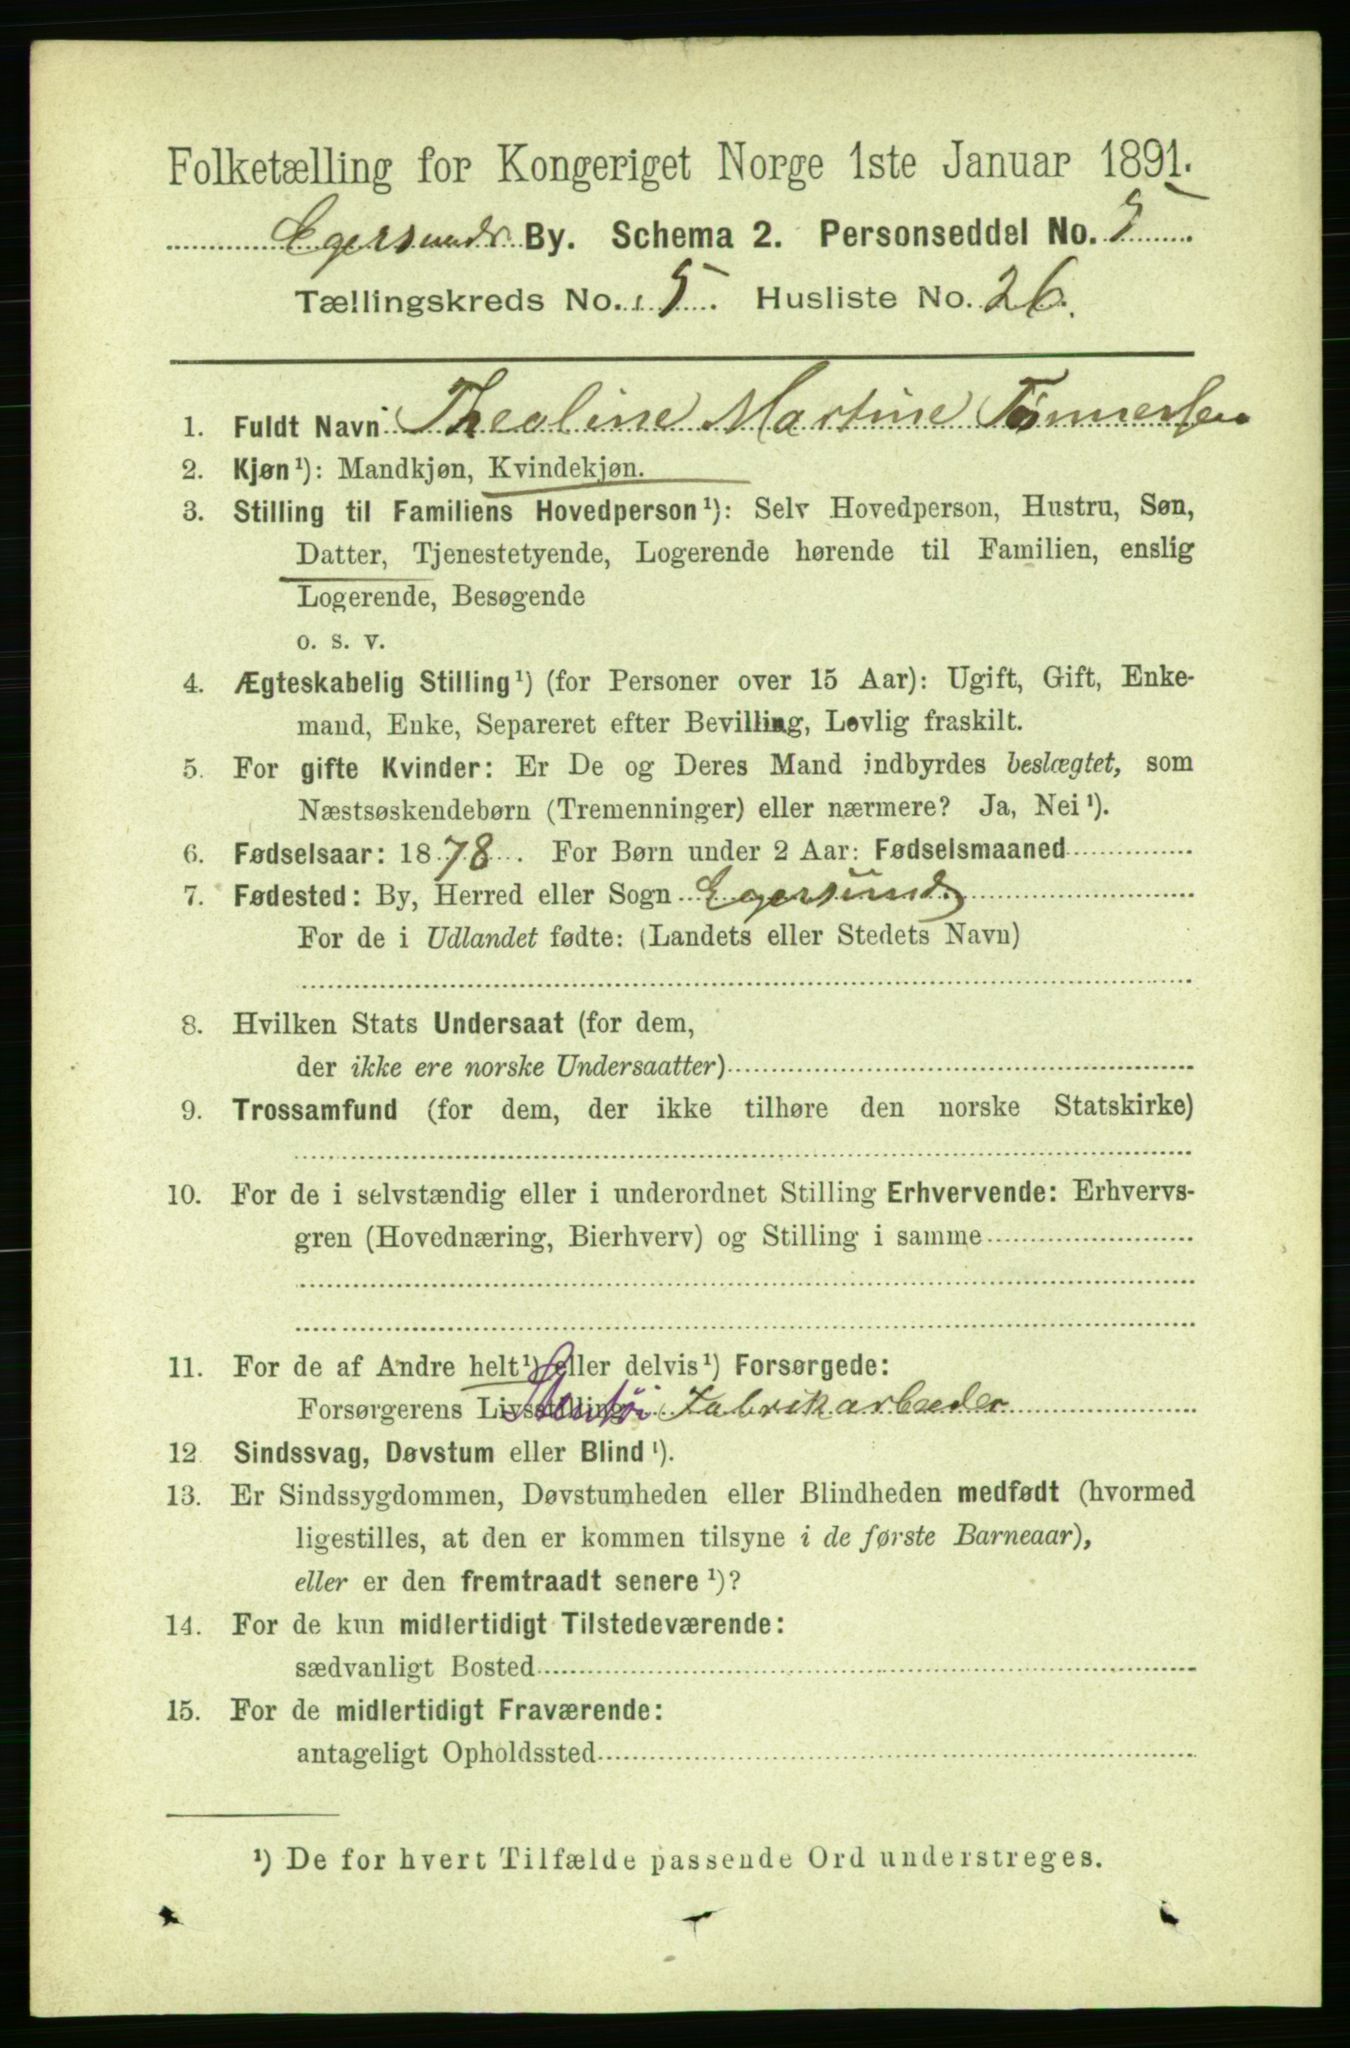 Folketælling for Kongeriget Norge 1ste Januar 1891.
Egersunds By. Schema 2. Personseddel No. 5
Tællingskreds No. 5. Husliste No. 26.
1. Fuldt Navn Theoline Martine Tønnessen
2. Kjøn¹): Mandkjøn, Kvindekjøn.
3. Stilling til Familiens Hovedperson¹): Selv Hovedperson, Hustru, Søn,
Datter, Tjenestetyende, Logerende hørende til Familien, enslig
Logerende, Besøgende
o. s. v.
4. Ægteskabelig Stilling¹) (for Personer over 15 Aar): Ugift, Gift, Enke-
mand, Enke, Separeret efter Bevilling, Lovlig fraskilt.
5. For gifte Kvinder: Er De og Deres Mand indbyrdes beslægtet, som
Næstsøskendebørn (Tremenninger) eller nærmere? Ja, Nei¹).
6. Fødselsaar: 1878. For Børn under 2 Aar: Fødselsmaaned
7. Fødested: By, Herred eller Sogn Egersund
For de i Udlandet fødte: (Landets eller Stedets Navn)
8. Hvilken Stats Undersaat (for dem,
der ikke ere norske Undersaatter)
9. Trossamfund (for dem, der ikke tilhøre den norske Statskirke)
10. For de i selvstændig eller i underordnet Stilling Erhvervende: Erhvervs-
gren (Hovednæring, Bierhverv) og Stilling i samme
11. For de af Andre helt¹) eller delvis¹) Forsørgede:
Forsørgerens Livsstilling Stentøi Fabrikarbeider
12 Sindssvag, Døvstum eller Blind¹).
13. Er Sindssygdommen, Døvstumheden eller Blindheden medfødt (hvormed
ligestilles, at den er kommen tilsyne i de første Barneaar),
eller er den fremtraadt senere¹)?
14. For de kun midlertidigt Tilstedeværende:
sædvanligt Bosted
15. For de midlertidigt Fraværende:
antageligt Opholdssted
¹) De for hvert Tilfælde passende Ord understreges.